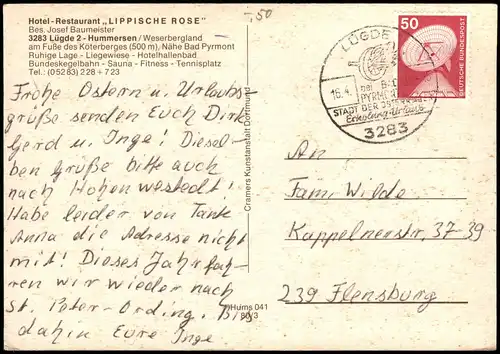 Hotel-Restaurant „LIPPISCHE ROSE"
Bes. Josef Baumeister
3283 Lügde 2 - Hummersen / Weserbergland
am Fuße des Köterberges (500 m), Nähe Bad Pyrmont
Ruhige Lage - Liegewiese - Hotelhallenbad
Bundeskegelbahn - Sauna - Fitness - Tennisplatz
Tel.: (05283) 228 + 723
-,50
Frohe Ostern u. Urlaubs-
grüße senden Euch Dirk
Gerd u. Inge! Diesel-
ben Grüße bitte auch
nach Hohenwestedt!
Habe leider von Tante
Anna die Adresse nicht
mit! Dieses Jahr fah-
ren wir wieder nach
St. Peter-Ording. Bis
dahin Eure Inge
Cramers Kunstanstalt Dortmund
Hums 041
80/3
LÜGDE
16.4.
bei BAD
PYRMONT
STADT DER OSTERRÄDER
Erholung-Urlaub
3283
50
DEUTSCHE BUNDESPOST
An
Fam. Wilde
Kappelnerstr. 37-39
239 Flensburg